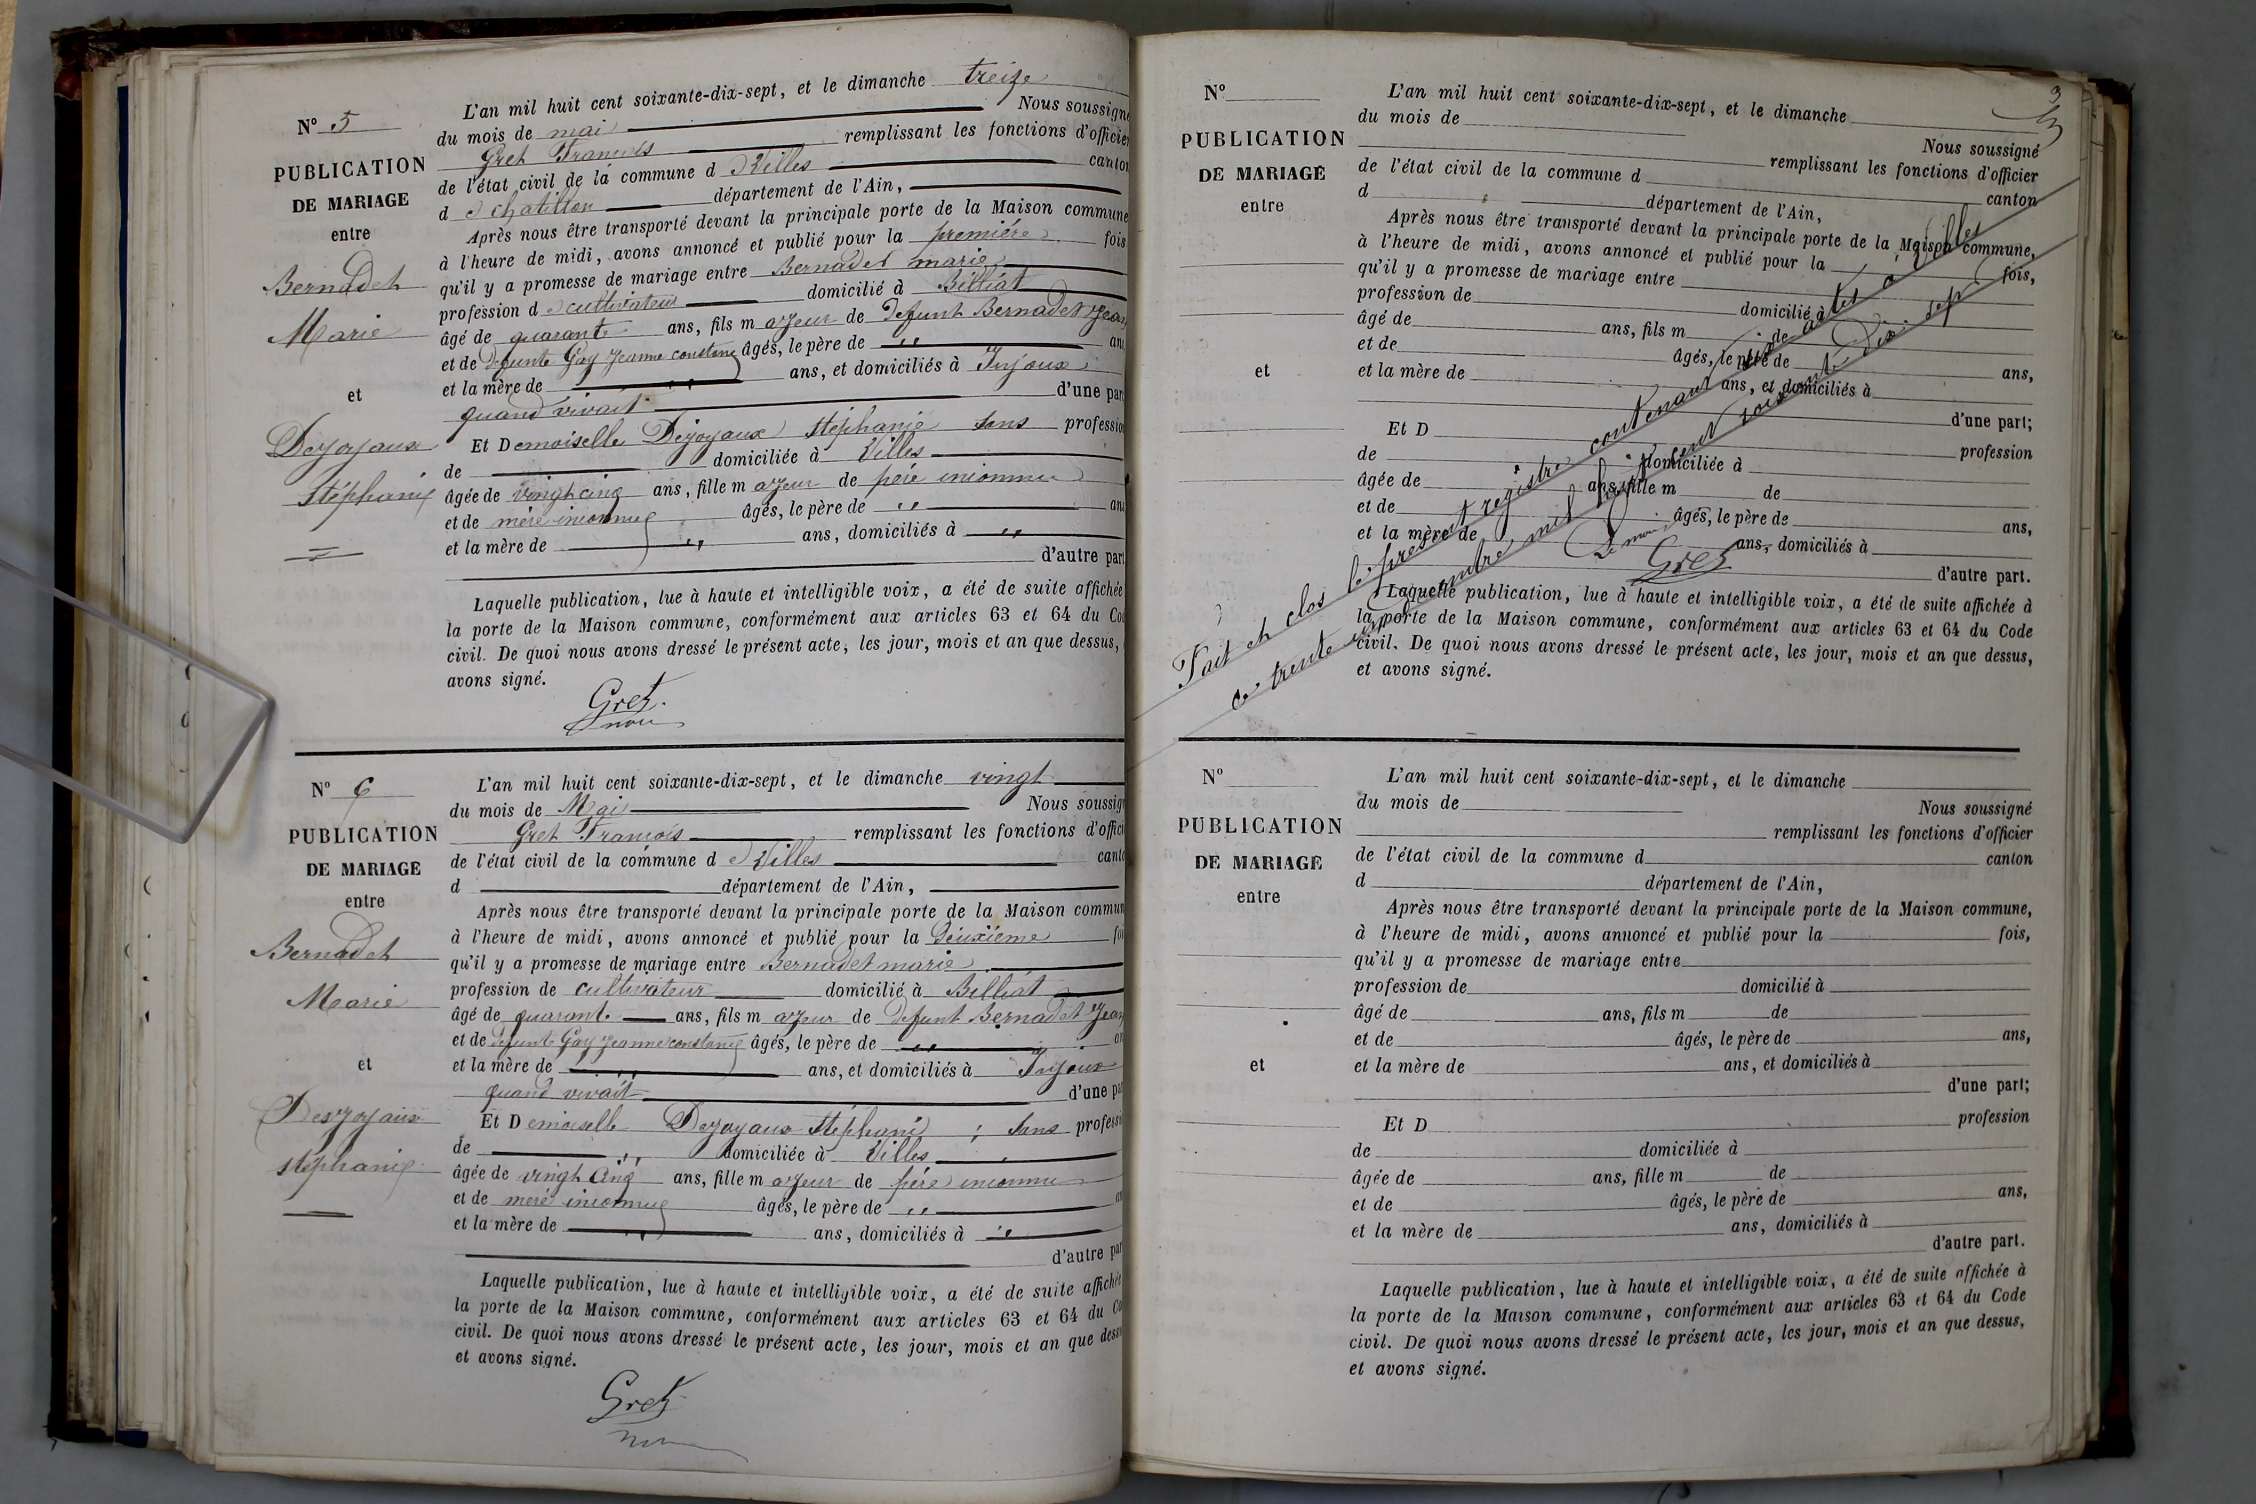 N° 5
PUBLICATION
DE MARIAGE
entre
Bernadet
Marie
et
Dejoyaux
Stéphanie
L'an mil huit cent soixante-dix-sept, et le dimanche treize
du mois de mai Nous soussigné
Gret François remplissant les fonctions d'officier
de l'état civil de la commune d e Villes canton
d e chatillon département de l'Ain,
Après nous être transporté devant la principale porte de la Maison commune
à l'heure de midi, avons annoncé et publié pour la première fois
qu'il y a promesse de mariage entre Bernadet marie
profession d e cultivateur domicilié à Billiat
âgé de quarante ans, fils m ajeur de defunt Bernadet Jean
et de defunte Gay Jeanne constance âgés, le père de ,, ans
et la mère de ,, ans, et domiciliés à Injoux
quand vivait d'une part
Et D emoiselle Dejoyaux Stéphanie sans profession
de domiciliée à Villes
âgée de vingt cinq ans, fille m ajeur de père inconnu
et de mère inconnue âgés, le père de ,, ans
et la mère de ,, ans, domiciliés à ,,
d'autre part
Laquelle publication, lue à haute et intelligible voix, a été de suite affichée
la porte de la Maison commune, conformément aux articles 63 et 64 du Cod
civil. De quoi nous avons dressé le présent acte, les jour, mois et an que dessus,
avons signé.
Gret
N° 6
PUBLICATION
DE MARIAGE
entre
Bernadet
Marie
et
Desjoyaux
stéphanie
L'an mil huit cent soixante-dix-sept, et le dimanche vingt
du mois de Mai Nous soussigné
Gret François remplissant les fonctions d'offici
de l'état civil de la commune d e Villes canto
d département de l'Ain,
Après nous être transporté devant la principale porte de la Maison commun
à l'heure de midi, avons annoncé et publié pour la deuxième foi
qu'il y a promesse de mariage entre Bernadet marie
profession de cultivateur domicilié à Billiat
âgé de quarante ans, fils m ajeur de defunt Bernadet Jean
et de defunte Gay Jeanne constance âgés, le père de ,, an
et la mère de ,, ans, et domiciliés à Injoux
quand vivait d'une par
Et D emoiselle Dejoyaux Stéphanie ; sans professi
de ,, domiciliée à Villes
âgée de vingt cinq ans, fille m ajeur de père inconnu
et de mère inconnue âgés, le père de ,, an
et la mère de ,, ans, domiciliés à ,,
d'autre par
Laquelle publication, lue à haute et intelligible voix, a été de suite affichée
la porte de la Maison commune, conformément aux articles 63 et 64 du Co
civil. De quoi nous avons dressé le présent acte, les jour, mois et an que dessu
et avons signé.
Gret
3
N°
PUBLICATION
DE MARIAGE
entre
et
L'an mil huit cent soixante-dix-sept, et le dimanche
du mois de
Nous soussigné
remplissant les fonctions d'officier
de l'état civil de la commune d canton
d département de l'Ain,
Après nous être transporté devant la principale porte de la Maison commune,
à l'heure de midi, avons annoncé et publié pour la fois,
qu'il y a promesse de mariage entre
profession de domicilié à
âgé de ans, fils m de
et de âgés, le père de ans,
et la mère de ans, et domiciliés à
d'une part;
Et D profession
de domiciliée à
âgée de ans, fille m de
et de âgés, le père de ans,
et la mère de ans, domiciliés à
d'autre part.
Laquelle publication, lue à haute et intelligible voix, a été de suite affichée à
la porte de la Maison commune, conformément aux articles 63 et 64 du Code
civil. De quoi nous avons dressé le présent acte, les jour, mois et an que dessus,
et avons signé.
Fait et clos le présent registre contenant six actes a Villes
ce trente un décembre mil huit cent soixante dix sept
Le maire
Gret
N°
PUBLICATION
DE MARIAGE
entre
et
L'an mil huit cent soixante-dix-sept, et le dimanche
du mois de Nous soussigné
remplissant les fonctions d'officier
de l'état civil de la commune d canton
d département de l'Ain,
Après nous être transporté devant la principale porte de la Maison commune,
à l'heure de midi, avons annoncé et publié pour la fois,
qu'il y a promesse de mariage entre
profession de domicilié à
âgé de ans, fils m de
et de âgés, le père de ans,
et la mère de ans, et domiciliés à
d'une part;
Et D profession
de domiciliée à
âgée de ans, fille m de
et de âgés, le père de ans,
et la mère de ans, domiciliés à
d'autre part.
Laquelle publication, lue à haute et intelligible voix, a été de suite affichée à
la porte de la Maison commune, conformément aux articles 63 et 64 du Code
civil. De quoi nous avons dressé le présent acte, les jour, mois et an que dessus,
et avons signé.